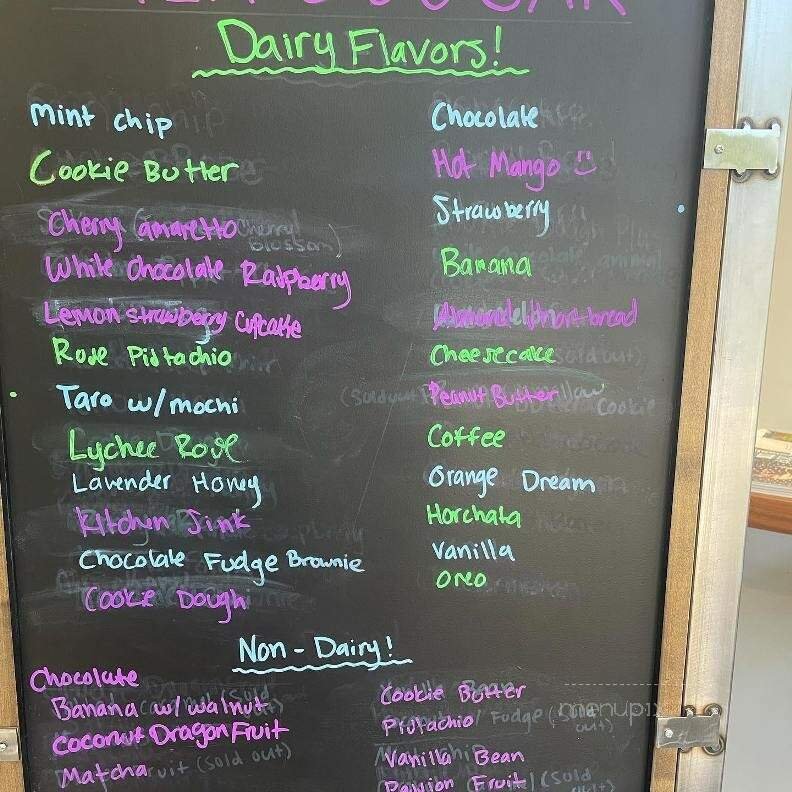 Dairy Flavors!
mint chip
Cookie Butter
Cherry Amaretto
White Chocolate Raspberry
Lemon strawberry Cupcake
Rose Pistachio
Taro w/mochi
Lychee Rose
Lavender Honey
Kitchen Sink
Chocolate Fudge Brownie
Cookie Dough
Chocolate
Hot Mango
Strawberry
Banana
Almond shortbread
Cheesecake
Peanut Butter
Coffee
Orange Dream
Horchata
Vanilla
Oreo
Non-Dairy!
Chocolate
Banana w/walnut
Coconut Dragon Fruit
Matcha
Cookie Butter
Pistachio
Vanilla Bean
Passion Fruit
menupix